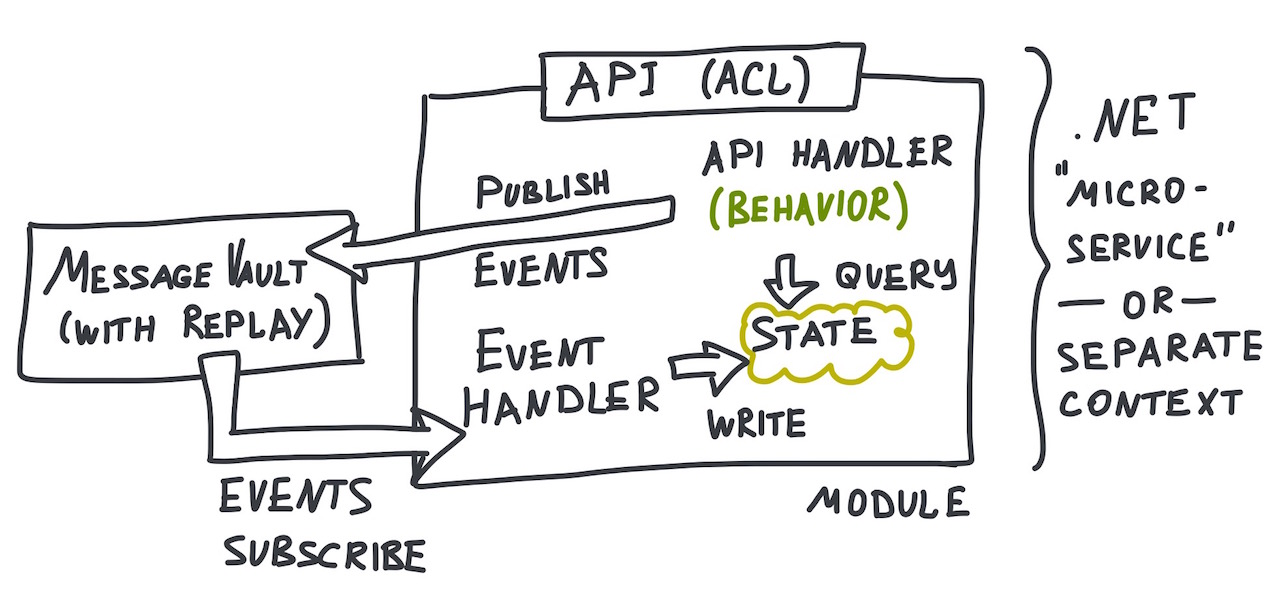 API (ACL)
API HANDLER
(BEHAVIOR)
PUBLISH
EVENTS
MESSAGE VAULT
(WITH REPLAY)
QUERY
STATE
EVENT
HANDLER
WRITE
EVENTS
SUBSCRIBE
MODULE
.NET
"MICRO-
SERVICE"
— OR —
SEPARATE
CONTEXT